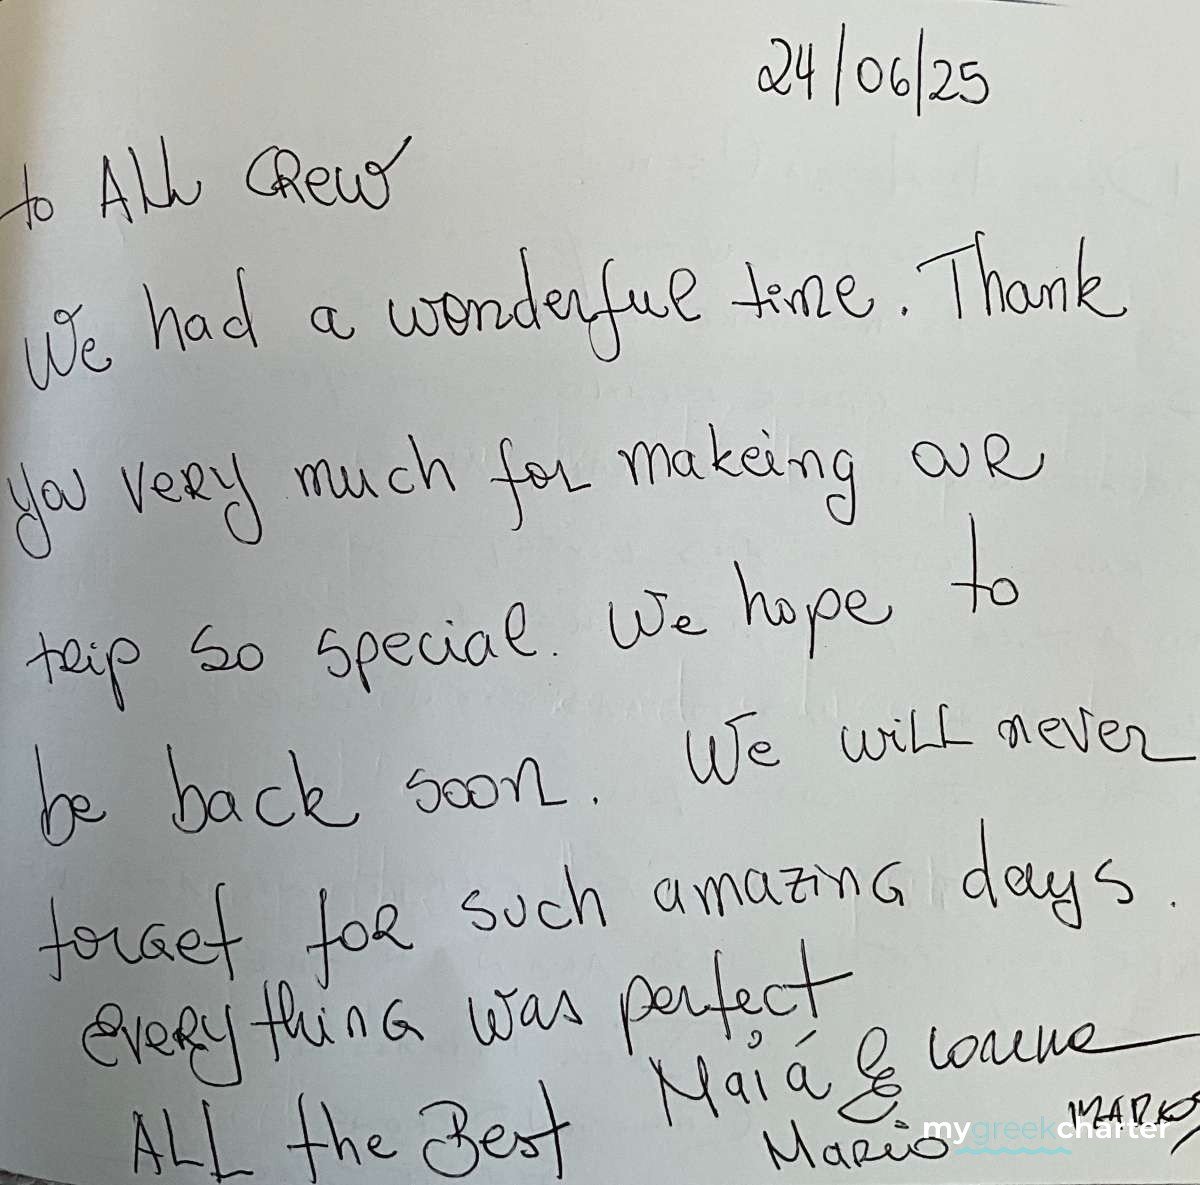 24/06/25
to ALL CRew
We had a wonderful time. Thank
you very much for makeing ouR
trip so special. We hope to
be back soon. We will never
forget for such amazing days.
everything was perfect
Maiá &
ALL the Best Mario MARKOS
mygreekcharter